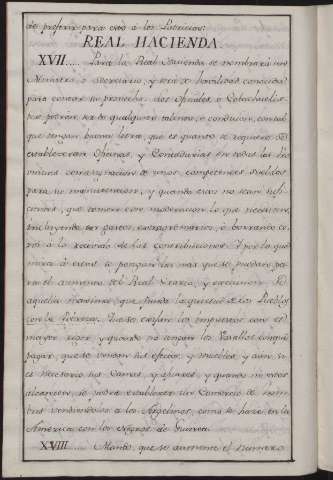 de preferir para esto á los Patricios:
REAL HACIENDA.
XVII.... Para la Real Hacienda se nombrará un
Ministro ó Secretario, y será de havilidad conocida
para conocer su provecho. Los Oficiales ó Covachuelis-
tas podran ser de qualquier talento, ó conducta, con tal
que tengan buena letra, que es quanto se requiere. Se
establecerán Oficinas, y Contadurias en todas las Pro-
vincias con asignacion de unos competentes sueldos
para su manutencion, y quando estos no sean sufi-
cientes, que tomen con moderacion lo que necesiten,
incluyendo en gastos extraordinarios, ó borrando ce-
ros á lo recivido de las contribuciones. Y por lo que
mira á estas se pongan las mas que se puedan pa-
ra el aumento del Real Erario, y execucion de
aquella maxima que funda la quietud de los Pueblos
con la Pobreza. Que se exijan los impuestos con el
mayor rigor, y quando no tengan los Vasallos con que
pagar, que se vendan sus efectos, y muebles, y aun si
es necesario sus Camas, y ajuares, y quando ni estos
alcancen, se podrá establecer un Comercio de hom-
bres vendiendolos á los Argelinos, como se hace en la
America con los Negros de Guinea.
XVIII.... Mando, que se aumente el numero